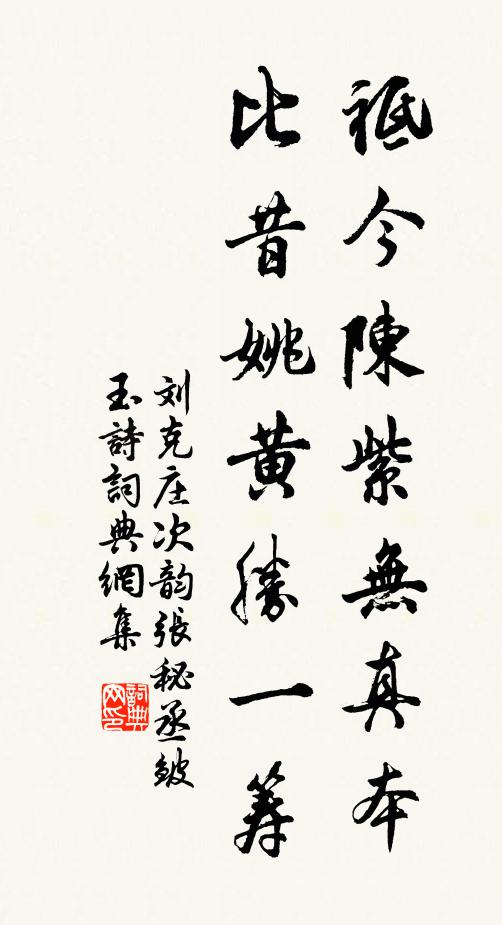 祗今陳紫無真本
比昔姚黄勝一筹
刘克庄次韵張秘丞皴
玉詩詞典網集
詞典
网印